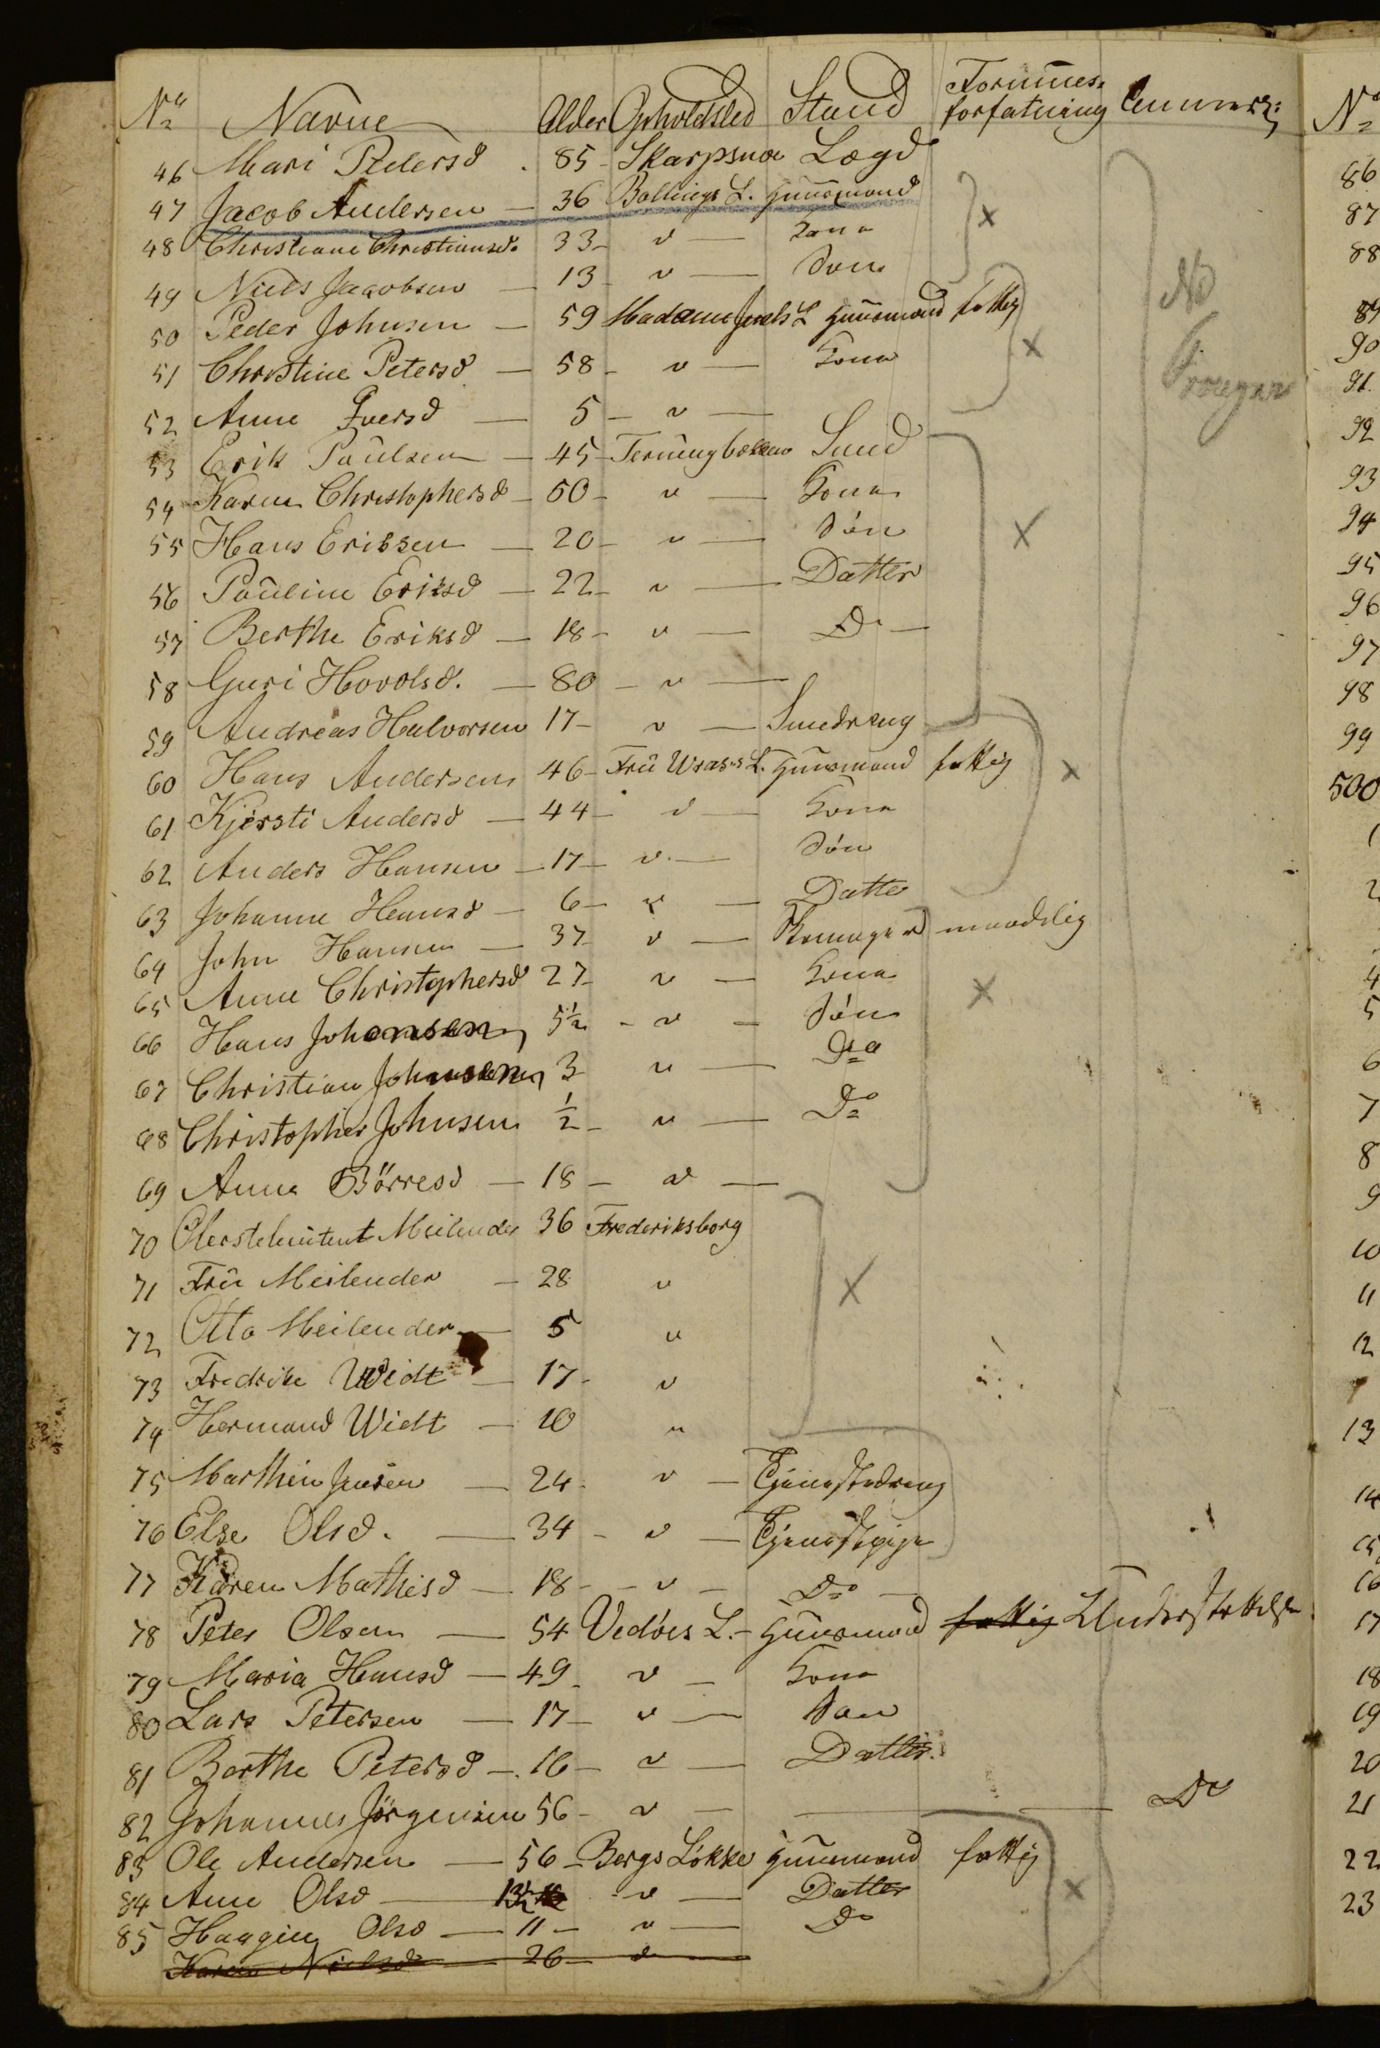 No Navne Alder Opholdsted Stand Formues-forfatning Anmærk:
46 Mari Pedersd. 85 - Skarpsnoe Lægd
47 Jacob Andersen - 36 Ballings L. Huusmand
48 Christiane Christiansd. 33 - " - Kone
49 Niels Jacobsen - 13 " - Søn
50 Peder Johnsen - 59 Madame Juels L Huusmand fattig
51 Christine Petersd - 58 - " - Kone
52 Anne Iversd - 5 - " -
53 Erik Paulsen - 45 - Terningbækken Smed
54 Karen Christophersd - 50 - " - Kone
55 Hans Eriksen - 20 - " - Søn
56 Pauline Eriksd - 22 - " - Datter
57 Berthe Eriksd - 18 - " - Do -
58 Guri Hovolsd. - 80 - " -
59 Andreas Halvorsen 17 - " - Smedreng
60 Hans Andersen 46 - Frü L. Huusmand fattig
61 Kjersti Andersd - 44 - " - Kone
62 Anders Hansen - 17 - " - Søn
63 Johanne Hansd - 6 - " - Datter
64 John Hansen - 37 - " - Skomager maadelig
65 Anne Christophersd 27 - " - Kone
66 Hans Johansen 5½ - " - Søn
67 Christian Johnsen 3 - " - Do
68 Christopher Johnsen ½ - " - Do
69 Anne Börresd - 18 - " -
70 Oberstleutent Meilender 36 Frederiksborg
71 Frü Meilender - 28 "
72 Otto Meilender - 5 "
73 Fredrike Widt - 17 - "
74 Hermand Widt - 10 "
75 Marthin Jensen - 24 - " - Tjenestedreng
76 Else Olsd. - 34 - " - Tjenestepige
77 Karen Mathisd - 18 - " - Do -
78 Peter Olsen - 54 Vedöes L. - Huusmand fattig Understøttelse
79 Maria Hansd - 49 - " - Kone
80 Lars Petersen - 17 - " - Søn
81 Berthe Petersd - 16 - " - Datter
82 Johannes Jörgensen 56 - " - Do
83 Ole Andersen - 56 - Bergs Løkke Huusmand fattig
84 Ane Olsd - 13½ - " - Datter
85 Haagine Olsd - 11 - " - Do
Karen Nielsd - 26 - " -
No
86
87
88
89
90
91
92
93
94
95
96
97
98
99
500
1
2
4
5
6
7
8
9
10
11
12
13
14
15
16
17
18
19
20
21
22
23